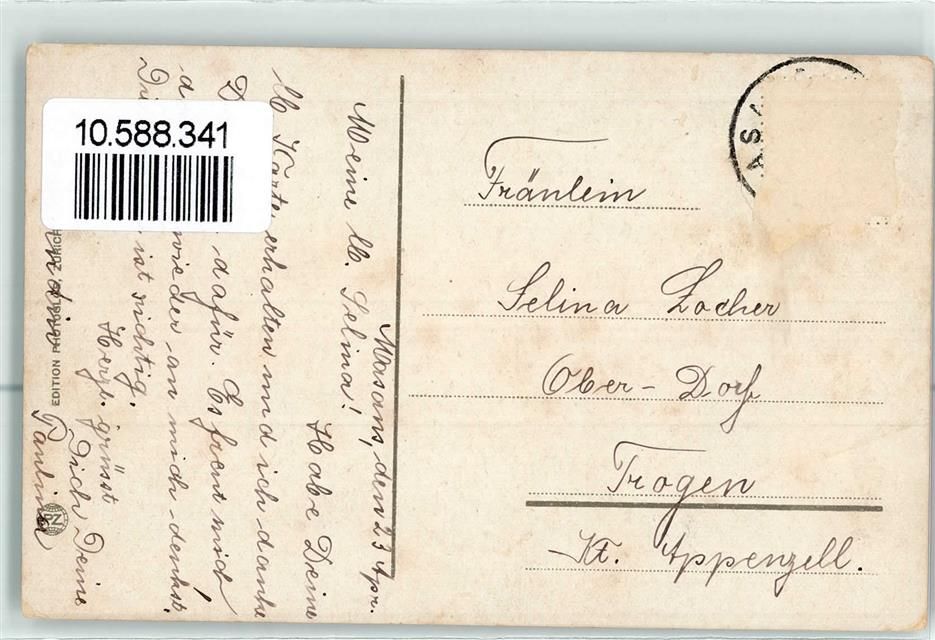 10.588.341
Masans, den 23 Apr.
Meine lb. Selina!
Habe Deine
lb Karte erhalten und ich danke
D dafür. Es freut mich
d wieder an mich denkst.
ist richtig.
Herzl. grüsst
Dich Deine
Paulina
EDITION PHOTOGLOB, ZÜRICH
PZ
ASA
Fräulein
Selina Zocher
Ober-Dorf
Trogen
Kt. Appenzell.